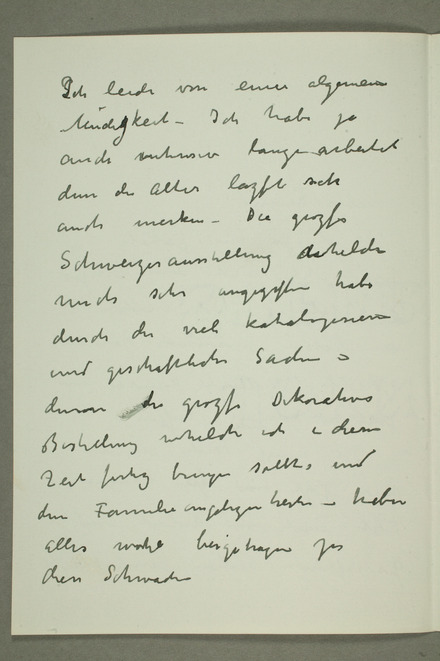 Ich leide von einer algemein
Müdigkeit – Ich habe ja
auch intensiv lange arbeitet
dann der Alter lazft sich
auch merken – Die grozfe
Schweizerausstellung
mich sehr angegriffen habe
durch die viele katalogisieren
und geschaftliche Sachen
die grozfe Dekorative
Bestellung welche ich in diesem
Zeit fertig bringen sollte und
den Familie angelegenheiten – haben
alles beigetragen zu
diese Schwäche